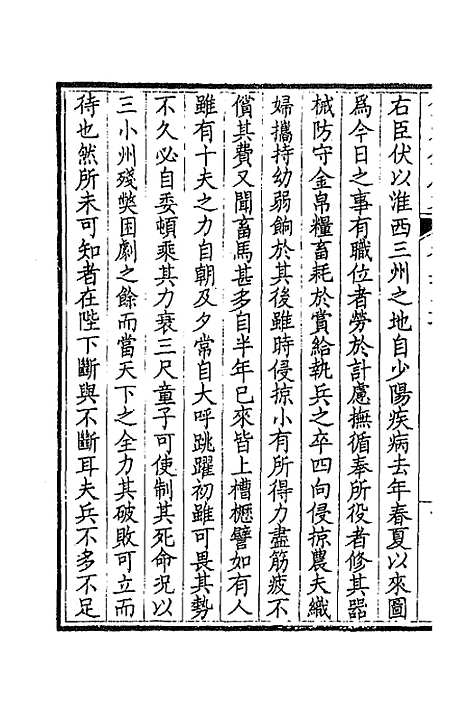 右臣伏以淮西三州之地自少陽疾病去年春夏以來圖
爲今日之事有職位者勞於計慮撫循奉所役者修其器
械防守金帛糧畜耗於賞給執兵之卒四向侵掠農夫織
婦攜持幼弱餉於其後雖時侵掠小有所得力盡筋疲不
償其費又聞畜馬甚多自半年已來皆上槽櫪譬如有人
雖有十夫之力自朝及夕常自大呼跳躍初雖可畏其勢
不久必自委頓乘其力衰三尺童子可使制其死命況以
三小州殘獘困劇之餘而當天下之全力其破敗可立而
待也然所未可知者在陛下斷與不斷耳夫兵不多不足